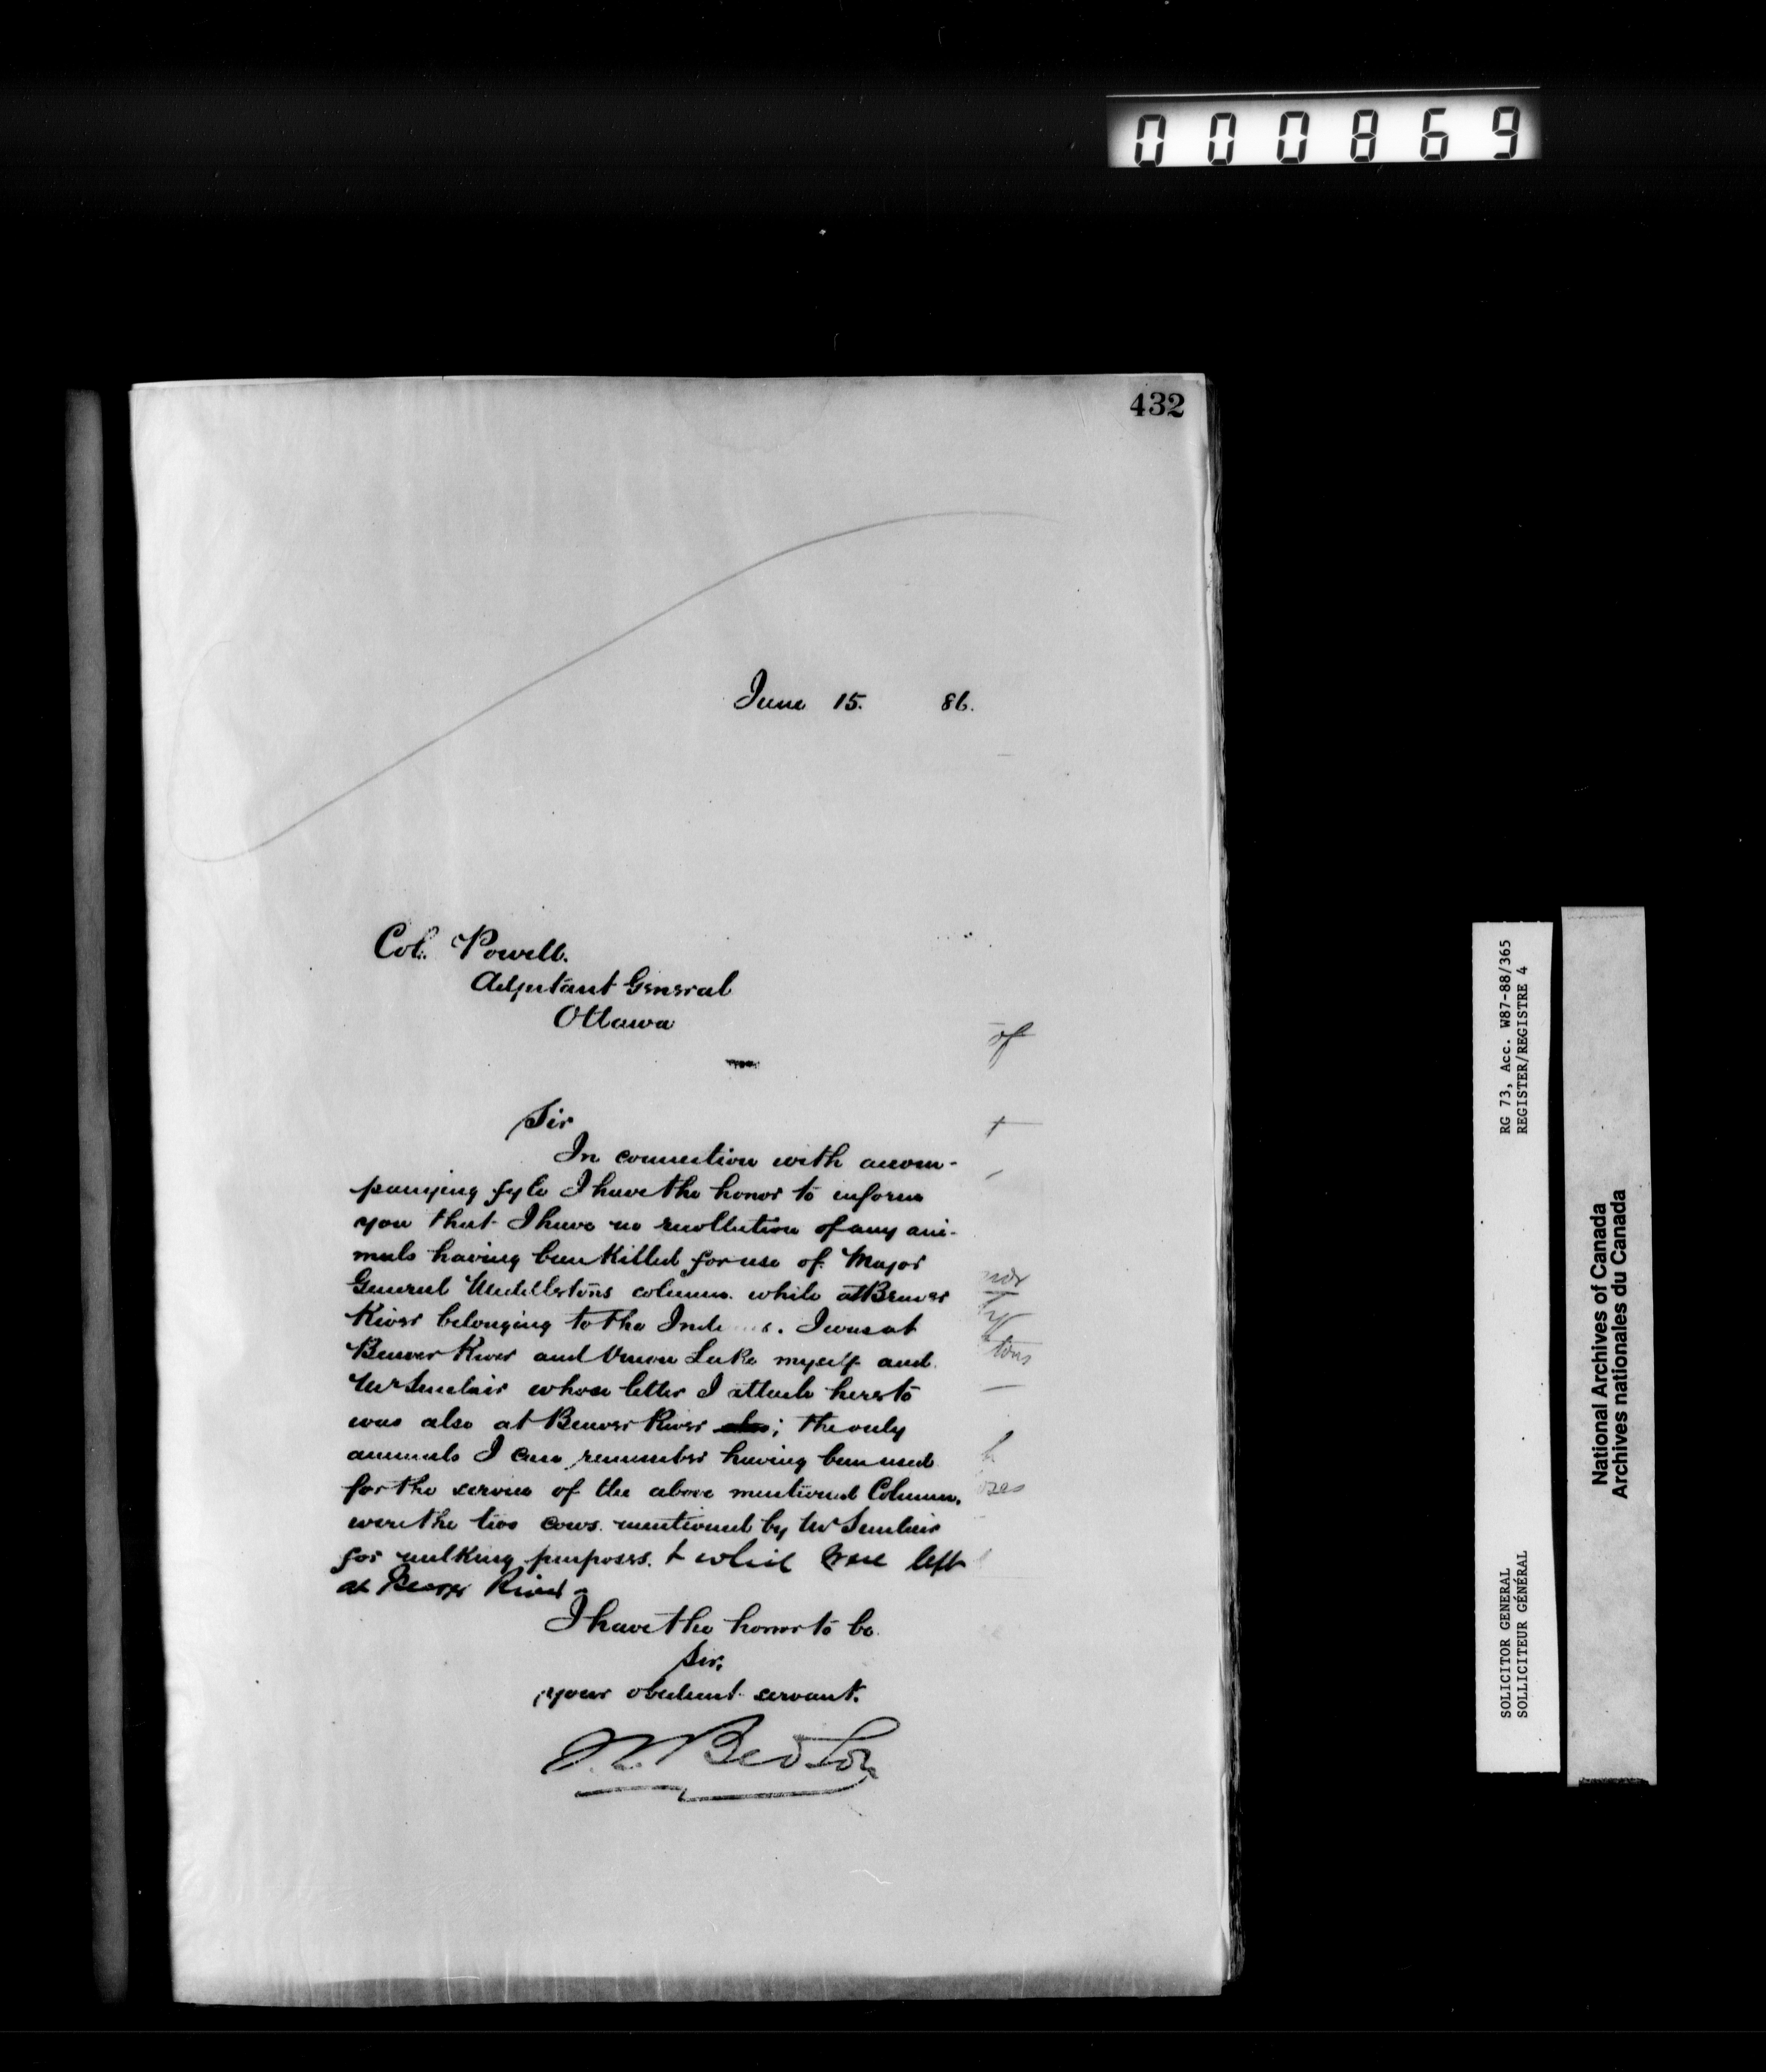 000869
432
June 15. 86.
Col. Powell.
Adjutant General
Ottawa
Sir
In connection with accom-
panying fyle I have the honor to inform
you that I have no recollection of any ani-
mals having been killed for use of Major
General Middleton's column while at Beaver
River belonging to the I was at
Beaver River and Lake myself and
Mr Sinclair whose letter I attach hereto
was also at Beaver River ; the only
animals I can remember having been used
for the service of the above mentioned Column,
were the two cows mentioned by Mr Sinclair
for milking purposes. & which were left
at Beaver River
I have the honor to be
Sir,
your obedient servant.
Bedson
RG 73, Acc. W87-88/365
REGISTER/REGISTRE 4
SOLICITOR GENERAL
SOLLICITEUR GÉNÉRAL
National Archives of Canada
Archives nationales du Canada